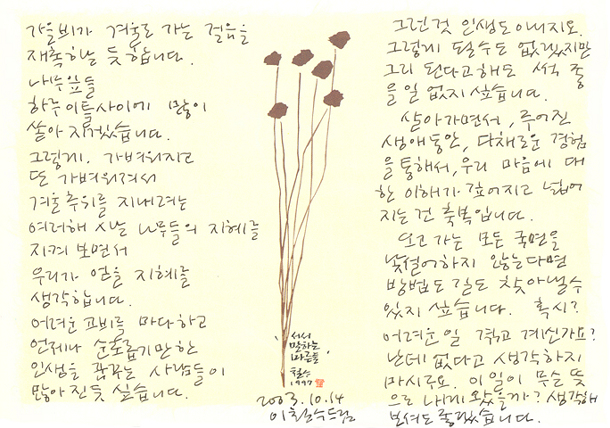 가을비가 겨울로 가는 걸음을
재촉하는 듯 합니다.
나뭇잎들
하루 이틀사이에 많이
쏟아 지겠습니다.
그렇게. 가벼워지고
또 가벼워져서
겨울추위를 지내려는
여러해 사는 나무들의 지혜를
지켜 보면서
우리가 얻을 지혜를
생각합니다.
어려운 고비를 마다하고
언제나 순조롭기만한
인생을 꿈꾸는 사람들이
많아진듯 싶습니다.
서서
말하는
마른풀
철수
1997
2003.10.14
이철수드림
그런것 인생도 아니지요.
그렇게 될수도 없겠지만
그리 된다고해도 썩 좋
을일 없지 싶습니다.
살아가면서, 주어진
생애동안, 다채로운 경험
을통해서, 우리 마음에 대
한 이해가 깊어지고 넓어
지는건 축복입니다.
오고 가는 모든 국면을
낯설어하지 않는다면
방법도 길도 찾아낼수
있지 싶습니다. 혹시?
어려운일 겪고 계신가요?
난데 없다고 생각하지
마시구요. 이일이 무슨 뜻
으로 내게 왔을까? 생각해
보셔도 좋겠습니다.